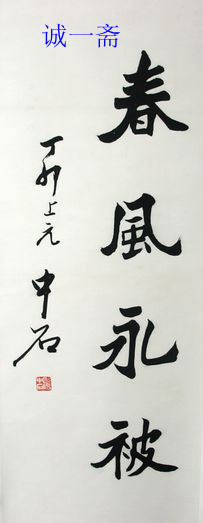 诚一斋
春風永被
丁卯上元 中石